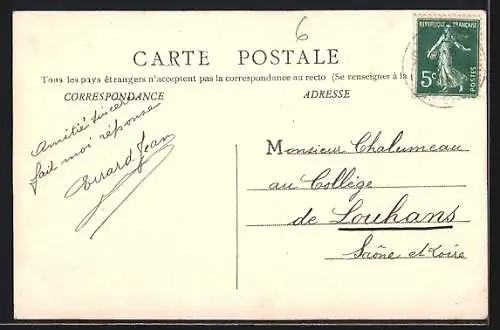 6
RÉPUBLIQUE FRANÇAISE
5c
POSTES
CARTE POSTALE
Tous les pays étrangers n'acceptent pas la correspondance au recto (Se renseigner à la
CORRESPONDANCE
ADRESSE
Amitié sincère
fait moi réponse
Jean
Monsieur Chalumeau
au Collège
de Louhans
Saône et Loire